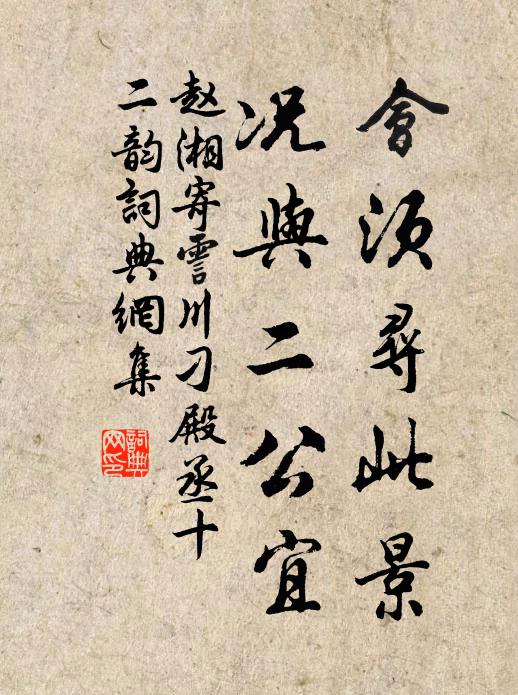 會須尋此景
況與二公宜
赵湘寄雪川刁殿丞十
二韵詞典網集
詞典
網印